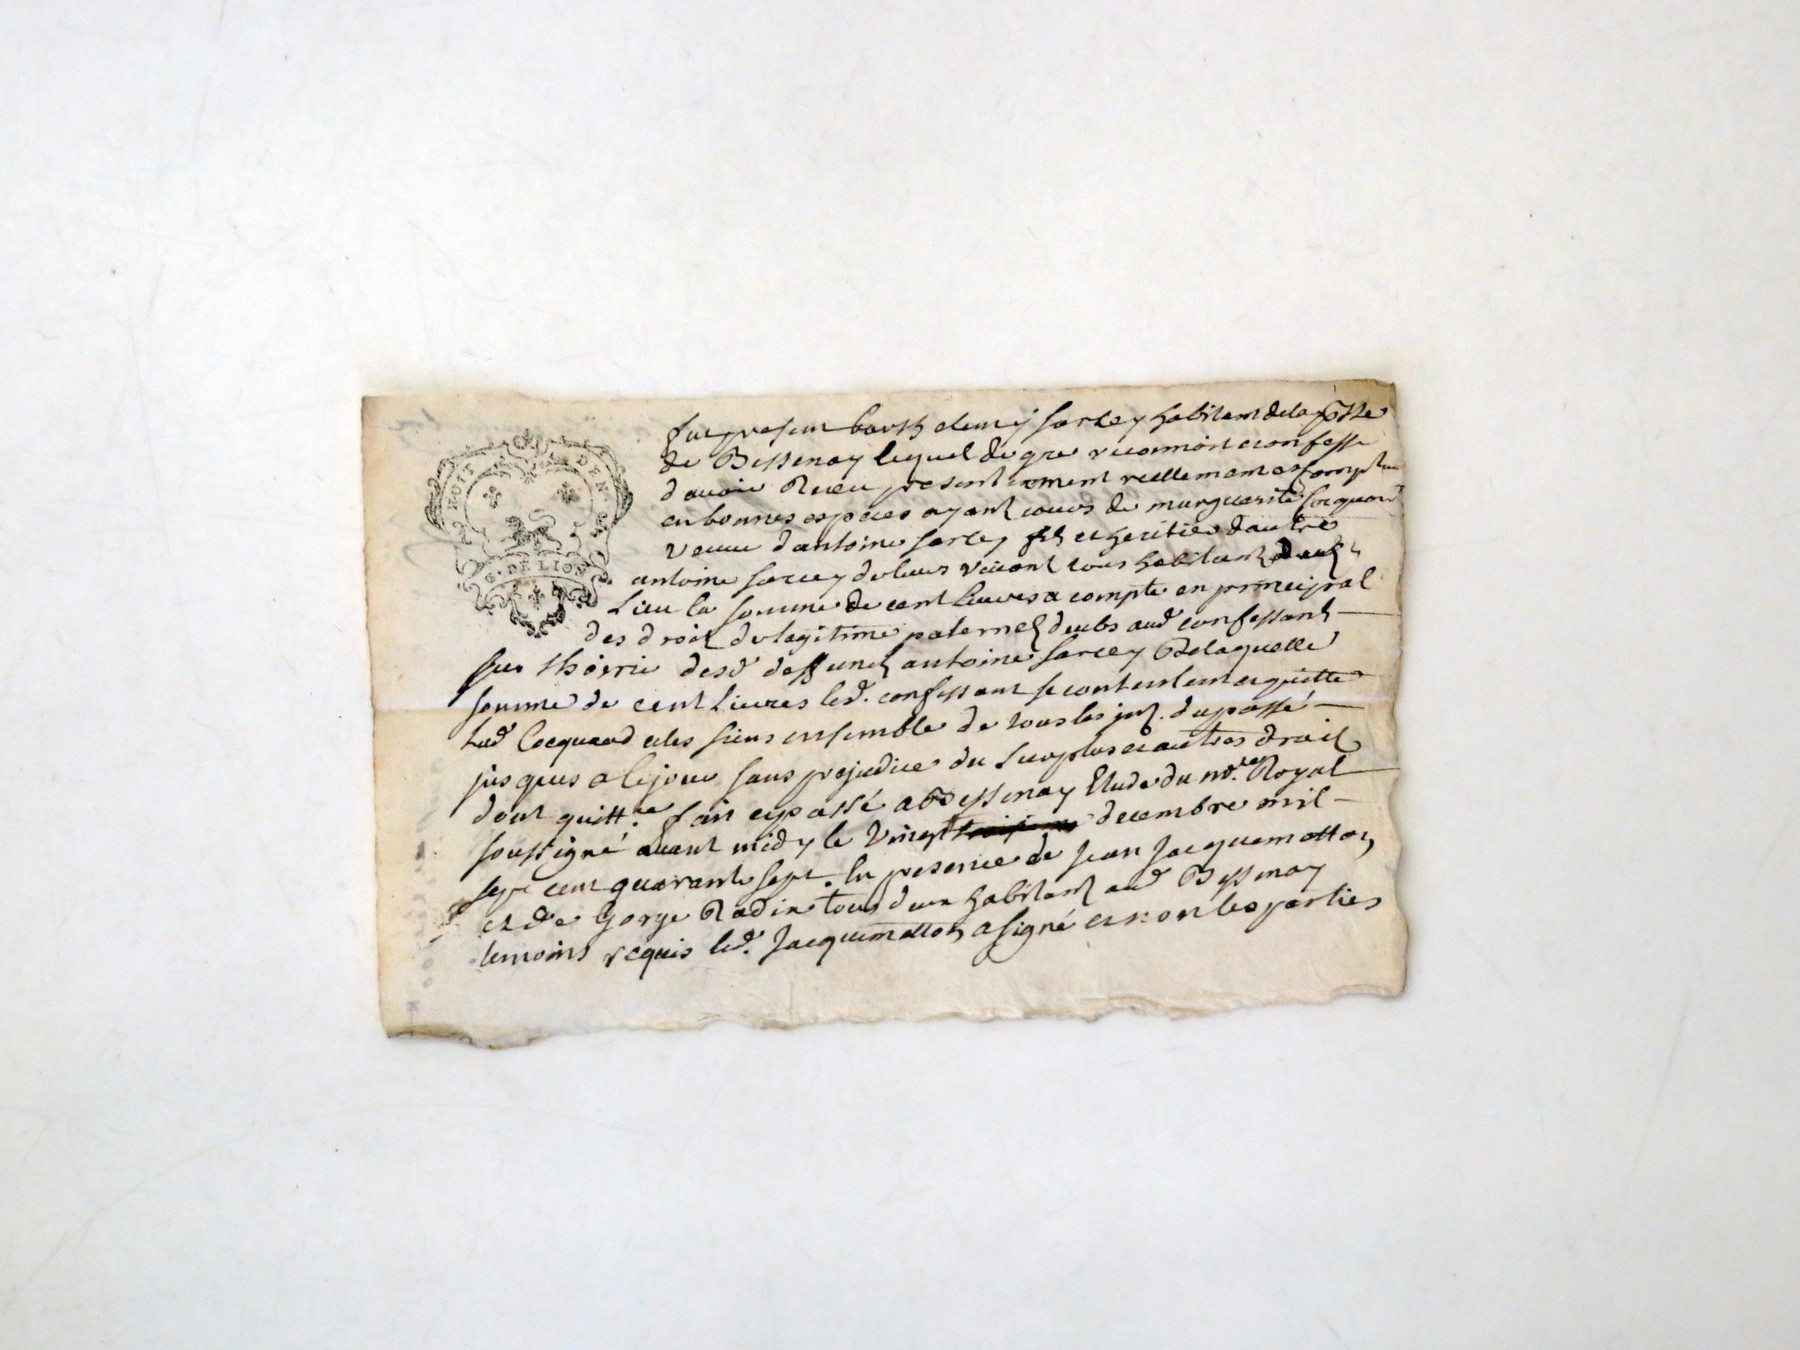 HUIT DEN.
G. DE LION
fut present barthelemy sarcey habitant de la psse
de Bessenay lequel de gre reconnoit et confesse
d'avoir Receu presentement reellement et comptant
en bonnes especes ayant cours de marguerite Cocquard
veuve d'antoine sarcey fils et heritie d'autre
antoine sarcey de leurs vivant tous habitant dud.
Lieu la somme de cent Livres a compte en principal
des droits de legitime paternels deubs aud. confessant
sur l'hoirie desd. deffuncts antoine sarcey De laquelle
somme de cent Livres led. confessant se contente et quitte
lad. Cocquard et les siens ensemble de tous les int. du passé
jusques a ce jour sans prejudice du surplus et autres droits
dont quitt.ce fait et passé a Bessenay Etude du no.re Royal
soussigné avant midy le vingt decembre mil
sept cent quarante sept. En presence de Jean Jacquemetton
et de George Radix tous deux habitant aud. Bessenay
temoins requis led. Jacquemetton a signé et non les parties